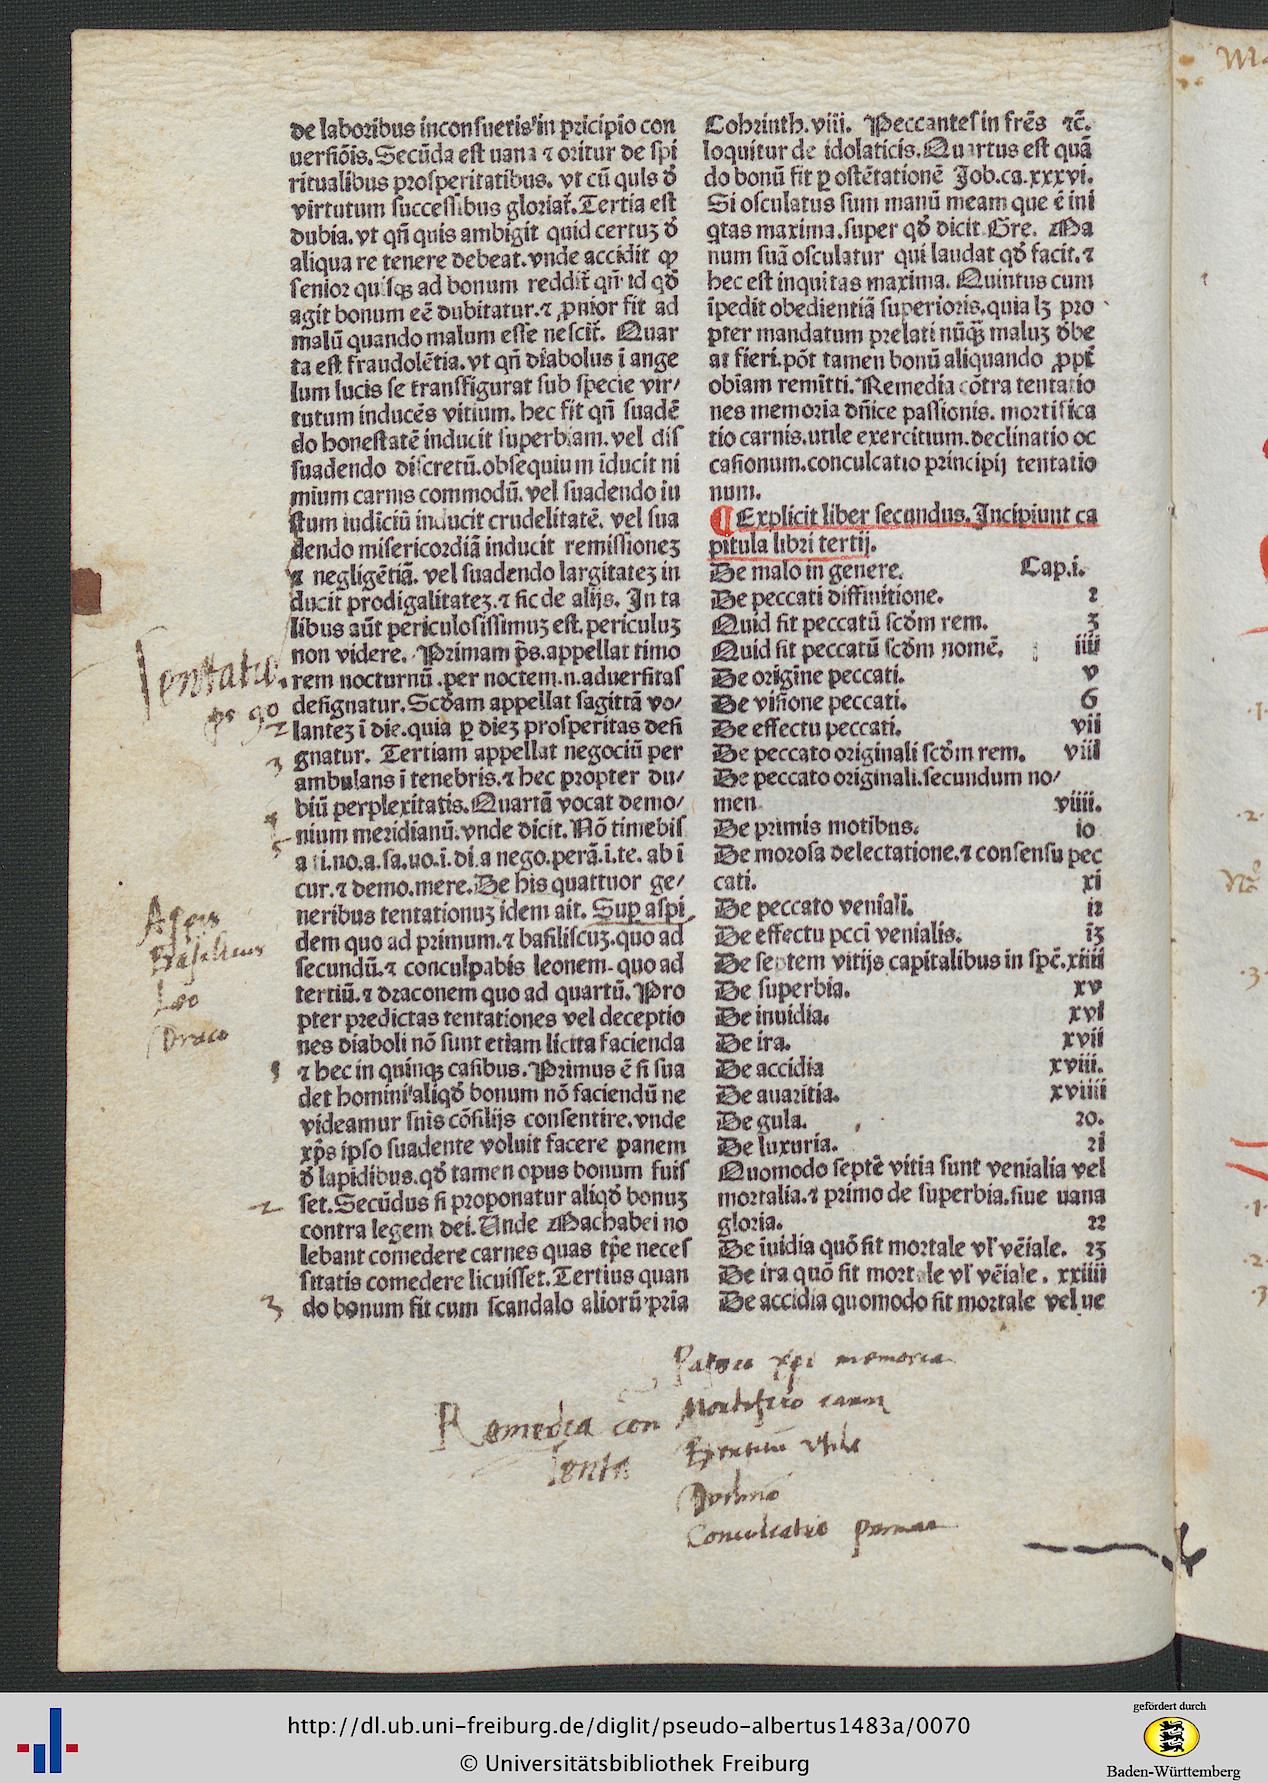 de laboribus inconsuetis in pricipio con
uersiõis. Secũda est uana ⁊ oritur de spi
ritualibus prosperitatibus. vt cũ quis ð
virtutum successibus gloriat̃. Tertia est
dubia. vt qñ quis ambigit quid certuꝫ ð
aliqua re tenere debeat. vnde accidit ꝙ
senior quisqꝫ ad bonum reddit̃ qñ id qð
agit bonum eẽ dubitatur. ⁊ ꝓnior fit ad
malũ quando malum esse nescit̃. Quar
ta est fraudolẽtia. vt qñ diabolus ĩ ange
lum lucis se transfigurat sub specie vir/
tutum inducẽs vitium. hec fit qñ suadẽ
do honestatẽ inducit superbiam. vel dis
suadendo discretũ. obsequium iducit ni
mium carnis commodũ. vel suadendo iu
stum iudiciũ inducit crudelitatẽ. vel sua
dendo misericordiã inducit remissioneꝫ
⁊ negligẽtiã. vel suadendo largitateꝫ in
ducit prodigalitateꝫ. ⁊ sic de alijs. In ta
libus aũt periculosissimuꝫ est. periculuꝫ
non videre. Primam p̃s. appellat timo
rem nocturnũ. per noctem. n. aduersitas
designatur. Scðam appellat sagittã vo/
lanteꝫ ĩ die. quia ꝑ dieꝫ prosperitas desi
gnatur. Tertiam appellat negociũ per
ambulans ĩ tenebris. ⁊ hec propter du/
biũ perplexitatis. Quartã vocat demo/
nium meridianũ. vnde dicit. Nõ timebis
a ti. no. a. sa. uo. i. di. a nego. perã. i. te. ab i
cur. ⁊ demo. mere. De his quattuor ge/
neribus tentationuꝫ idem ait. Sup aspi
dem quo ad primum. ⁊ basiliscuꝫ. quo ad
secundũ. ⁊ conculpabis leonem. quo ad
tertiũ. ⁊ draconem quo ad quartũ. Pro
pter predictas tentationes vel deceptio
nes diaboli nõ sunt etiam licita facienda
⁊ hec in quinqꝫ casibus. Primus ẽ si sua
det homini aliqð bonum nõ faciendũ ne
videamur suis cõsilijs consentire. vnde
xp̃s ipso suadente voluit facere panem
ð lapidibus. qð tamen opus bonum fuis
set. Secũdus si proponatur aliqð bonuꝫ
contra legem dei. Unde Machabei no
lebant comedere carnes quas tp̃e neces
sitatis comedere licuisset. Tertius quan
do bonum fit cum scandalo aliorũ pria
Cohrinth. viii. Peccantes in frẽs ⁊c̃.
loquitur de idolaticis. Quartus est quã
do bonũ fit ꝑ ostẽtationẽ Job. ca. xxxvi.
Si osculatus sum manũ meam que ẽ ini
qtas maxima. super qð dicit Gre. Ma
num suã osculatur qui laudat qð facit. ⁊
hec est inquitas maxima. Quintus cum
ĩpedit obedientiã superioris. quia lꝫ pro
pter mandatum prelati nũqꝫ̃ maluꝫ ðbe
at fieri. põt tamen bonũ aliquando ꝓpt̃
obiam remitti. Remedia cõtra tentatio
nes memoria dñice passionis. mortifica
tio carnis. utile exercitium. declinatio oc
casionum. conculcatio principij tentatio
num.
¶ Explicit liber secundus. Incipiunt ca
pitula libri tertij.
De malo in genere. Cap. i.
De peccati diffinitione. 2
Quid sit peccatũ scðm rem. 3
Quid sit peccatũ scðm nomẽ. iiii
De origine peccati. v
De visiõne peccati. 6
De effectu peccati. vii
De peccato originali scðm rem. viii
De peccato originali. secundum no/
men viiii.
De primis motibus. io
De morosa delectatione. ⁊ consensu pec
cati. xi
De peccato veniali. i2
De effectu pcci venialis. i3
De septem vitijs capitalibus in spẽ. xiiii
De superbia. xv
De inuidia. xvi
De ira. xvii
De accidia xviii.
De auaritia. xviiii
De gula. 20.
De luxuria. 2i
Quomodo septẽ vitia sunt venialia vel
mortalia. ⁊ primo de superbia. siue uana
gloria. 22
De iuidia quõ fit mortale vl' vẽiale. 23
De ira quõ fit mortale vl' vẽiale. xxiiii
De accidia quomodo fit mortale vel ue
Tentatio.
ps 90
2
3
4
5
Aspis
Basiliscus
Leo
Draco
1
2
3
Remedia con
tenta
Passio xpi memoria
Mortificatio carnis
Exercitium utile
Conculcatio
http://dl.ub.uni-freiburg.de/diglit/pseudo-albertus1483a/0070
© Universitätsbibliothek Freiburg
gefördert durch
Baden-Württemberg